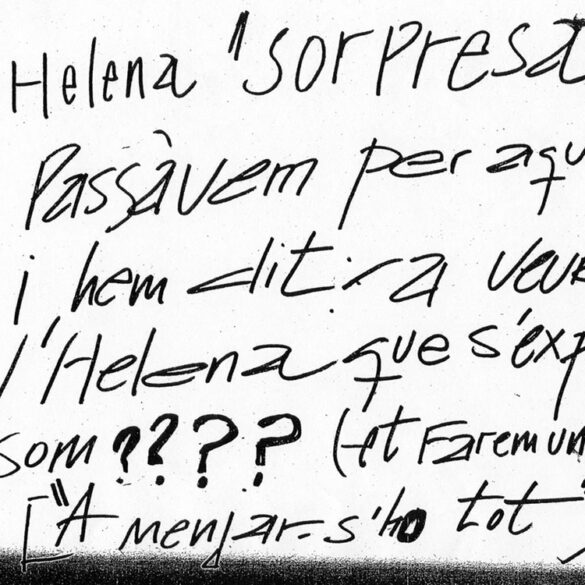 Helena "sorpresa
Passàvem per aqu
i hem dit: ·a veur
l'Helena que s'exp
som ???? (-et Farem un
["A menjar-s'ho tot"